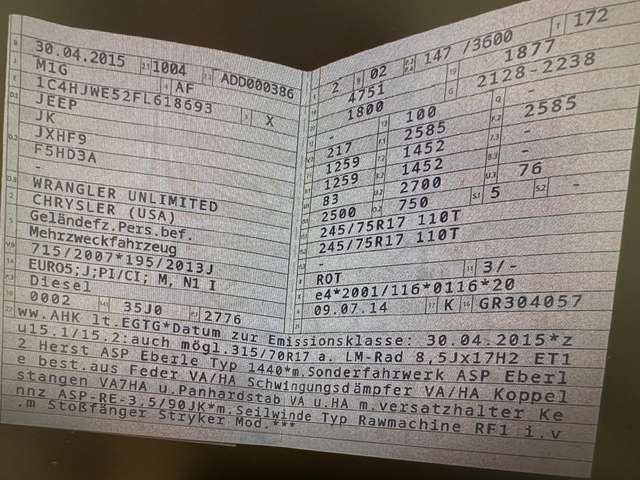 30.04.2015 1004 ADD000386
M1G AF
1C4HJWE52FL618693 X
JEEP
JK
JXHF9
F5HD3A
-
WRANGLER UNLIMITED
CHRYSLER (USA)
Geländefz.Pers.bef.
Mehrzweckfahrzeug
715/2007*195/2013J
EURO5;J;PI/CI; M, N1 I
Diesel
0002 35J0 2776
2 02 147 /3600 T 172
4751 1877
1800 2128-2238
- -
217 100 2585
1259 2585 -
1259 1452 -
83 1452 76
2500 2700 5 -
750
245/75R17 110T
245/75R17 110T
-
ROT 3/-
e4*2001/116*0116*20
09.07.14 K GR304057
ww.AHK lt.EGTG*Datum zur Emissionsklasse: 30.04.2015*z
u15.1/15.2:auch mögl.315/70R17 a. LM-Rad 8,5Jx17H2 ET1
2 Herst ASP Eberle Typ 1440*m.Sonderfahrwerk ASP Eberl
e best.aus Feder VA/HA Schwingungsdämpfer VA/HA Koppel
stangen VA7HA u.Panhardstab VA u.HA m.versatzhalter Ke
nnz ASP-RE-3,5/90JK*m.Seilwinde Typ Rawmachine RF1 i.v
.m Stoßfänger Stryker Mod.***